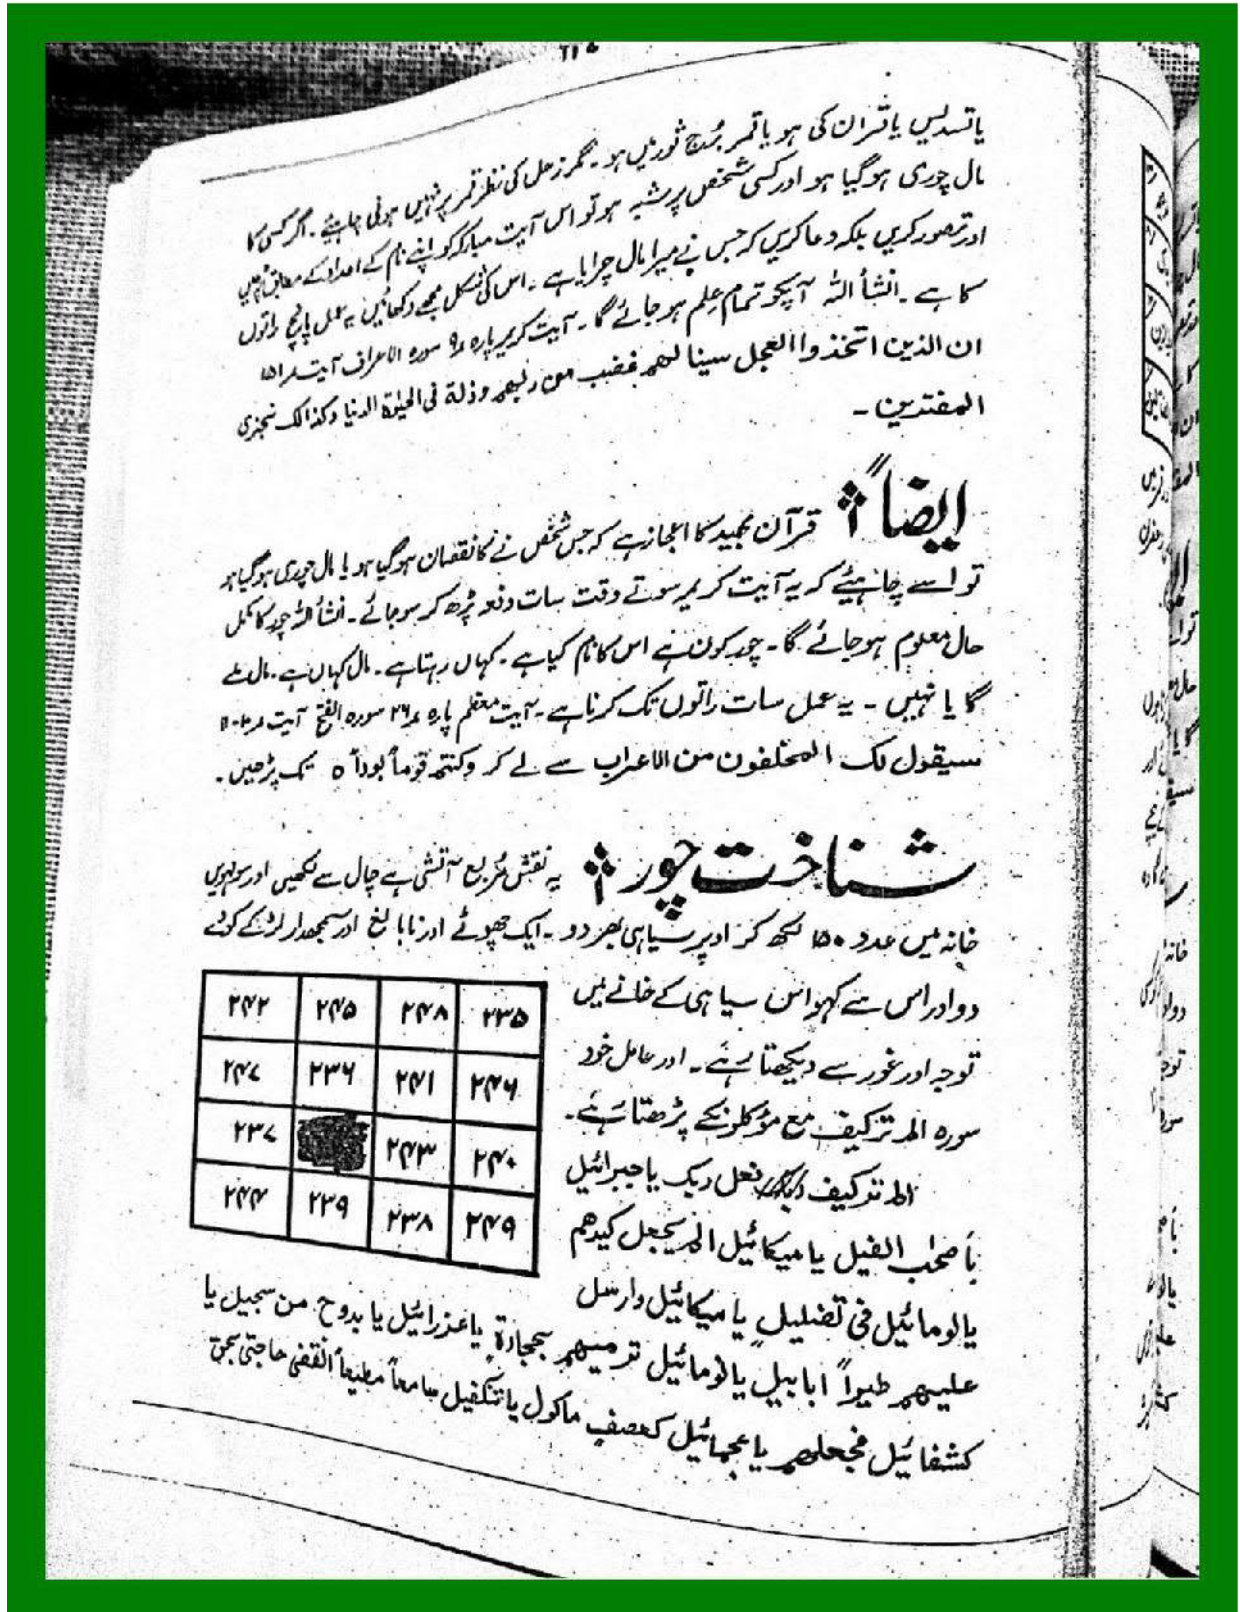 یا تسدیس یا قران کی ہو یا قمر برُج ثور میں ہو۔ مگر زحل کی نظر قمر پر نہیں ہونی چاہئیے۔ اگر کسی کا
مال چوری ہوگیا ہو اور کسی شخص پر شبہ ہو تو اس آیت مبارکہ کو اپنے نام کے اعداد کے مطابق پڑھیں
اور تصور کریں بلکہ دعا کریں کہ جس نے میرا مال چرایا ہے۔ اس کی شکل مجھے دکھائیں یہ عمل پانچ راتوں
کا ہے۔ انشأ اللہ آپکو تمام علِم ہو جائے گا۔ آیت کریم پارہ ۹ سورہ الاعراف آیت
ان الذین اتخذوا العجل سینا لھم غضب من ربھم وذلۃ فی الحیٰوۃ الدنیا وکذالک نجزی
المفترین۔
ایضاً
قرآن مجید کا اعجاز ہے کہ جس شخص نے کا نقصان ہوگیا ہو یا مال چوری ہوگیا ہو
تو اسے چاہئیے کہ یہ آیت کریمہ سوتے وقت سات دفعہ پڑھ کر سو جائے۔ انشأ اللہ چور کا مکمل
حال معلوم ہو جائے گا۔ چور کون ہے اس کا نام کیا ہے۔ کہاں رہتا ہے۔ مال کہاں ہے۔ مال ملے
گا یا نہیں۔ یہ عمل سات راتوں تک کرنا ہے۔ آیت معظم پارہ ۲۶ سورہ الفتح آیت
سیقول لک المخلفون من الاعراب سے لے کر وکنتم قوماً بوراً ہ تک پڑھیں۔
شناخت چور
یہ نقش مُربع آتشی ہے چال سے لکھیں اور سولہویں
خانہ میں عدد ۱۵۰ لکھ کر اوپر سیاہی بھر دو۔ ایک چھوٹے اور نابالغ اور سمجھدار لڑکے کو دے
دو اور اس سے کہو اس سیاہی کے خانے میں
توجہ اور غور سے دیکھتا رہے۔ اور عامل خود
سورہ الم ترکیف مع مؤکلونکے پڑھتا رہے۔
الم ترکیف فعل ربک یا جبرائیل
بأصحٰب الفیل یا میکائیل الم یجعل کیدھم
یا لومائیل فی تضلیلٍ یا میکائیل وارسل
علیھم طیراً ابابیل یا لومائیل ترمیھم بحجارۃٍ یا عزرائیل یا بدوح من سجیل یا
کشفائیل فجعلھم یا عجمائیل کعصفٍ ماکول یا تنکفیل سامعاً مطیعاً القضی حاجتی بحق
۲۴۲ ۲۴۵ ۲۴۸ ۲۳۵
۲۴۷ ۲۳۶ ۲۴۱ ۲۴۶
۲۳۷ ۲۴۳ ۲۴۰
۲۴۴ ۲۳۹ ۲۳۸ ۲۴۹